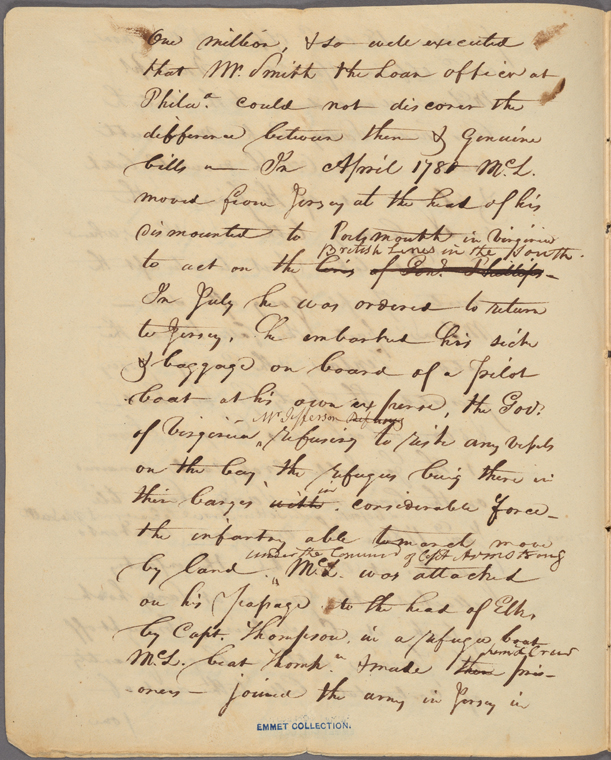 One million, & so well executed
that Mr. Smith the Loan officer at
Philad.a could not discover the
difference between them & Genuine
bills — In April 1780 McL.
moved from Jersey at the head of his
dismounted to Portsmouth in Virginia
British Lines in the South.
to act on the lines of Genl. Phillips
In July he was ordered to return
to Jersey, he embarked his sick
& baggage on board of a pilot
boat at his own expense, the Gov.r
Mr. Jefferson
of Virginia, refusing to risk any vessels
on the bay, the refugees being there in
in
their barges with considerable force—
the infantry able to march move
under the Command of Capt Armstrong
by land. McL. was attacked
on his passage to the head of Elk,
by Capt. Thompson in a refugee boat
and Crew
McL. beat Thomp.n & made them pris-
oners — joined the army in Jersey in
EMMET COLLECTION.